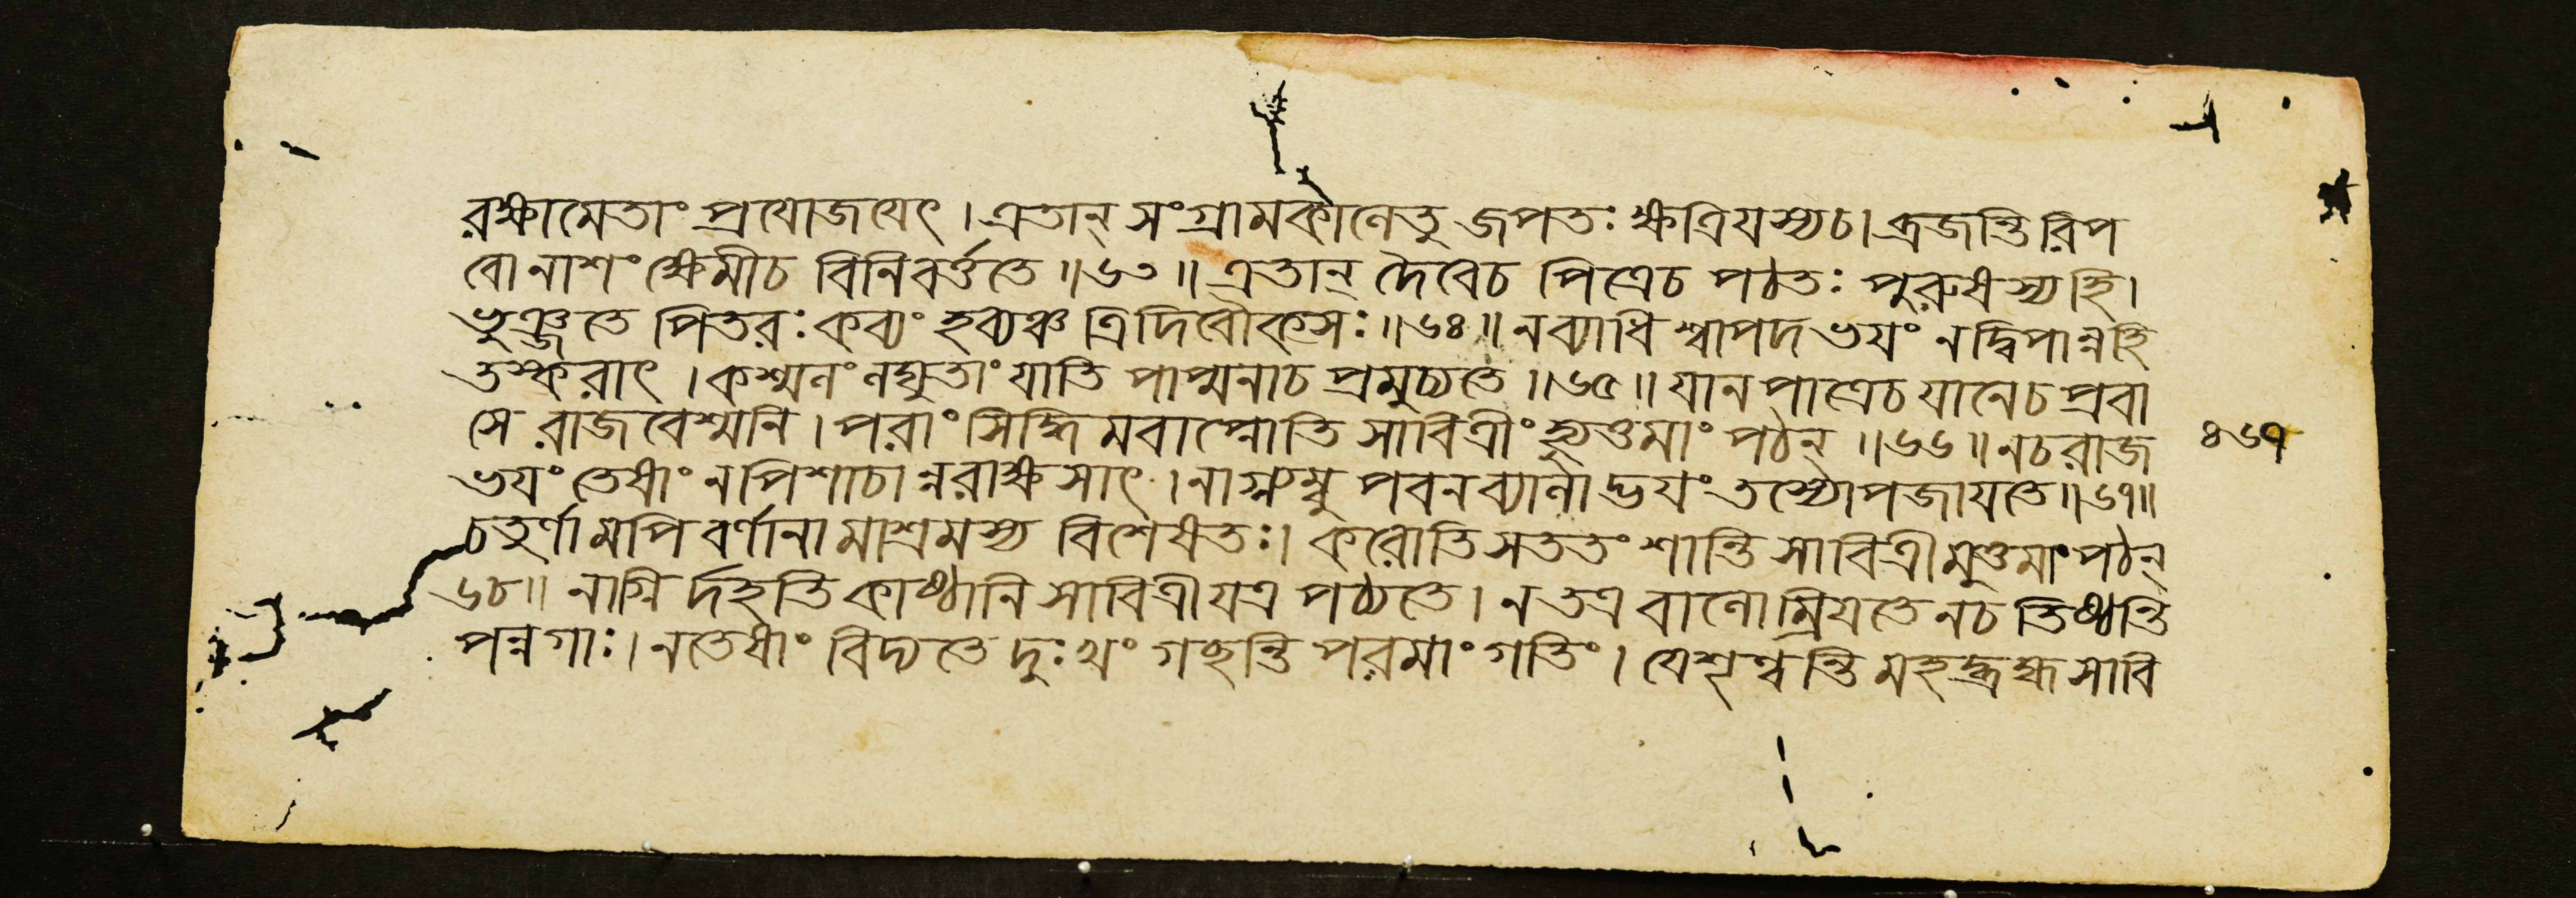 রক্ষামেতাং প্রযোজযেৎ । এতান্ সংগ্রামকালেতু জপতঃ ক্ষত্রিযস্যচ। ব্রজন্তি রিপ
বো নাশং ক্ষেমীচ বিনিবর্ত্ততে ॥৬৩॥ এতান্ দৈবেচ পিত্রেচ পঠতঃ পুরুষস্যহি।
ভুঞ্জতে পিতরঃ কব্যং হব্যঞ্চ ত্রিদিবৌকসঃ ॥৬৪॥ নব্যাধি শ্বাপদ ভযং নদ্বিপান্নহি
তস্করাৎ । কশ্মলং লঘুতাং যাতি পাপ্মনাচ প্রমুচ্যতে ॥৬৫॥ যানপাত্রেচ যানেচ প্রবা
সে রাজবেশ্মনি । পরাং সিদ্ধিমবাপ্নোতি সাবিত্রীং হ্যুত্তমাং পঠন্ ॥৬৬॥ নচ রাজ
ভযং তেষাং নপিশাচান্নরাক্ষসাৎ । নাগ্ন্যম্বু পবনব্যালাদ্ভযং তস্যোপজাযতে॥৬৭॥
চতুর্ণামপি বর্ণানামাশ্রমস্য বিশেষতঃ। করোতি সততং শান্তি সাবিত্রীমুত্তমাং পঠন্
৬৮॥ নাগ্নি র্দহতি কাষ্ঠানি সাবিত্রী যত্র পঠ্যতে । ন তত্র বালো ম্রিযতে নচ তিষ্ঠন্তি
পন্নগাঃ। নতেষাং বিদ্যতে দুঃখং গচ্ছন্তি পরমাং গতিং । যেশৃণ্বন্তি মহদ্ব্রহ্ম সাবি
৪৬৭